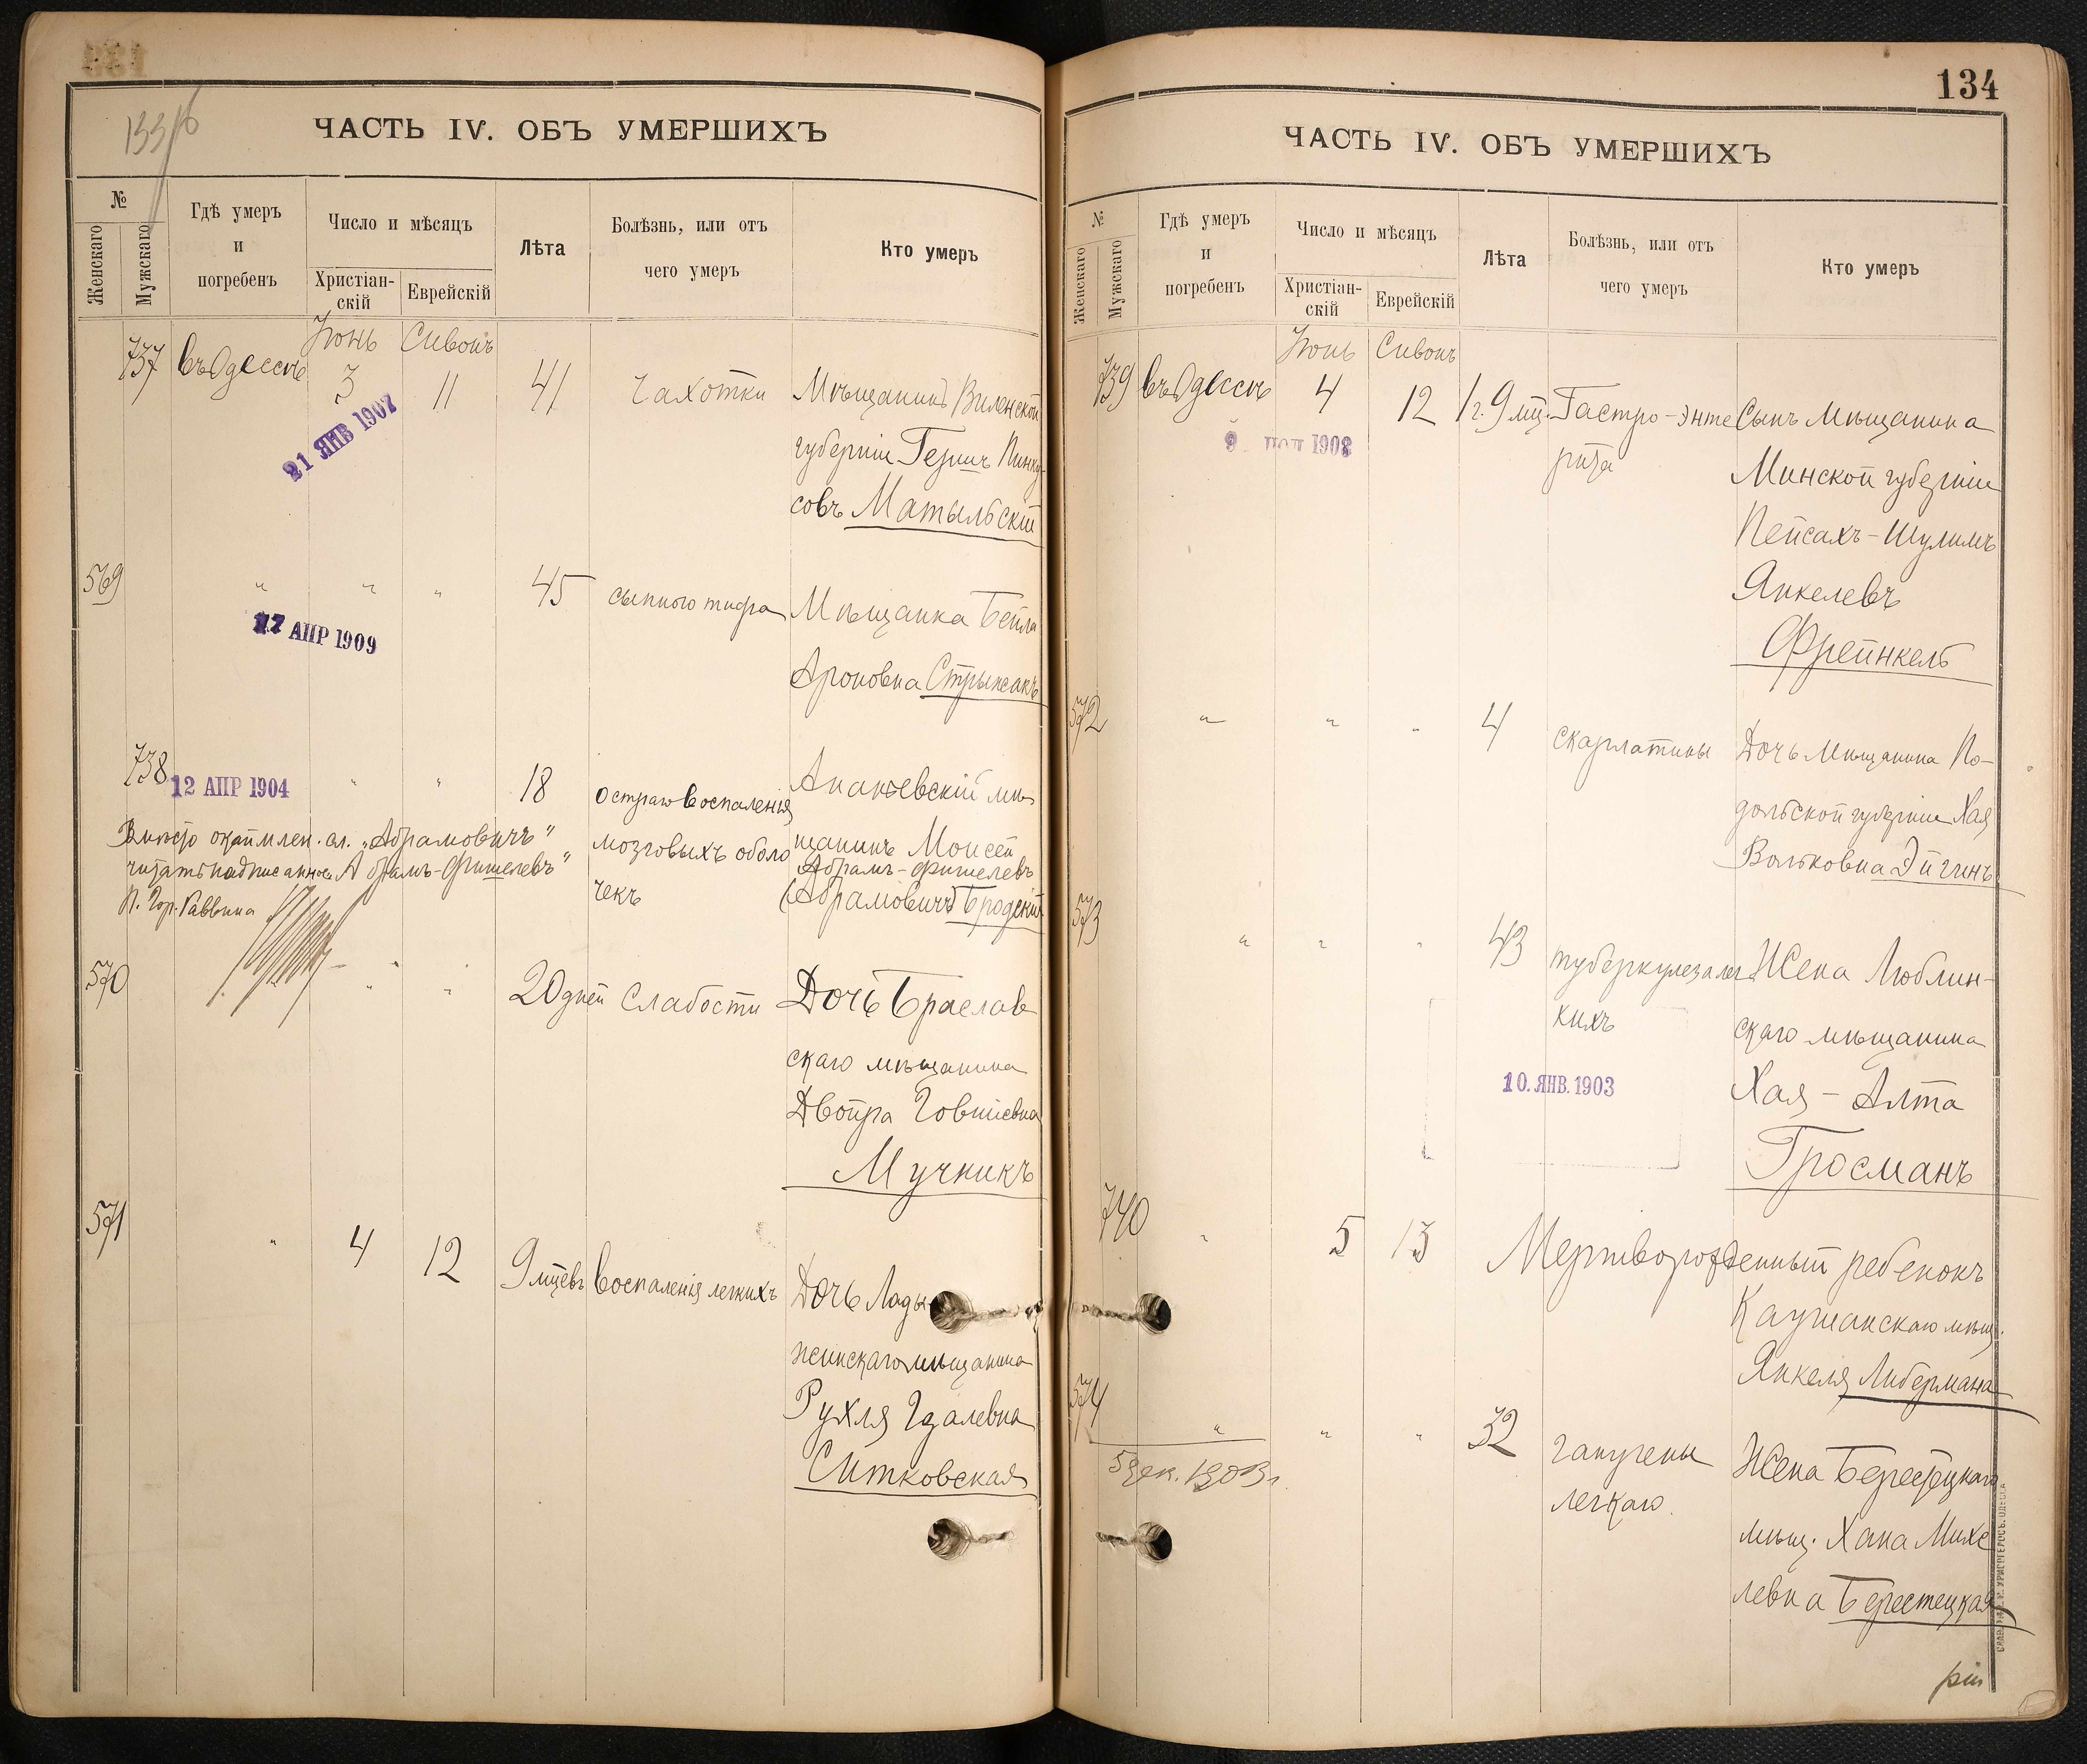 133/б
ЧАСТЬ IV. ОБЪ УМЕРШИХЪ
№
Женскаго
Мужскаго
Гдѣ умеръ
и
погребенъ
Число и мѣсяцъ
Христіан-
скій
Еврейскій
Лѣта
Болѣзнь, или отъ
чего умеръ
Кто умеръ
Іюнь Сивонъ
737 въ Одессѣ 3 11 41 Чахотки Мѣщанинъ Виленской
21 ЯНВ 1907
губерніи Гершъ Пинку-
совъ Матыльскій
569 " " " 45 сыпного тифа Мѣщанка Бейла
17 АПР 1909
Ароновна Стрыжакъ
738 12 АПР 1904 " " 18 остраго воспаленія Ананьевскій мѣ-
мозговыхъ оболо щанинъ Моисей
Абрамъ-Фишелевъ
чекъ (Абрамовичъ) Бродскій
Вмѣсто окаймлен. сл. "Абрамовичъ"
читать надписанное "Абрамъ-Фишелевъ"
И. Гор. Раввина
570 " " " 20 дней Слабости Дочь Брацлав
скаго мѣщанина
Двойра Іовшіевна
Мучникъ
571 " 4 12 9 мцевъ воспаленія легкихъ Дочь Лады-
жинскаго мѣщанина
Рухля Гдалевна
Ситковская
134
ЧАСТЬ IV. ОБЪ УМЕРШИХЪ
№
Женскаго
Мужскаго
Гдѣ умеръ
и
погребенъ
Число и мѣсяцъ
Христіан-
скій
Еврейскій
Лѣта
Болѣзнь, или отъ
чего умеръ
Кто умеръ
Іюнь Сивонъ
739 въ Одессѣ 4 12 1 г. 9 мц. Гастро-энте Сынъ мѣщанина
1908
рита Минской губерніи
Пейсахъ-Шулимъ
Янкелевъ
Фрейнкель
572 " " " 4 скарлатины Дочь мѣщанина По-
дольской губерніи Хая
Вольковна Эйгинъ
573 " " " 43 туберкулеза лег Жена Люблин-
кихъ скаго мѣщанина
10. ЯНВ. 1903
Хая-Алта
Гросманъ
740 " 5 13 Мертворожденный ребенокъ
Каушанскаго мѣщ.
Янкеля Либермана
574 " " " 32 гангрены Жена Берестецкаго
5 дек. 1903 г.
легкаго. мѣщ. Хана Михе
левна Берестецкая